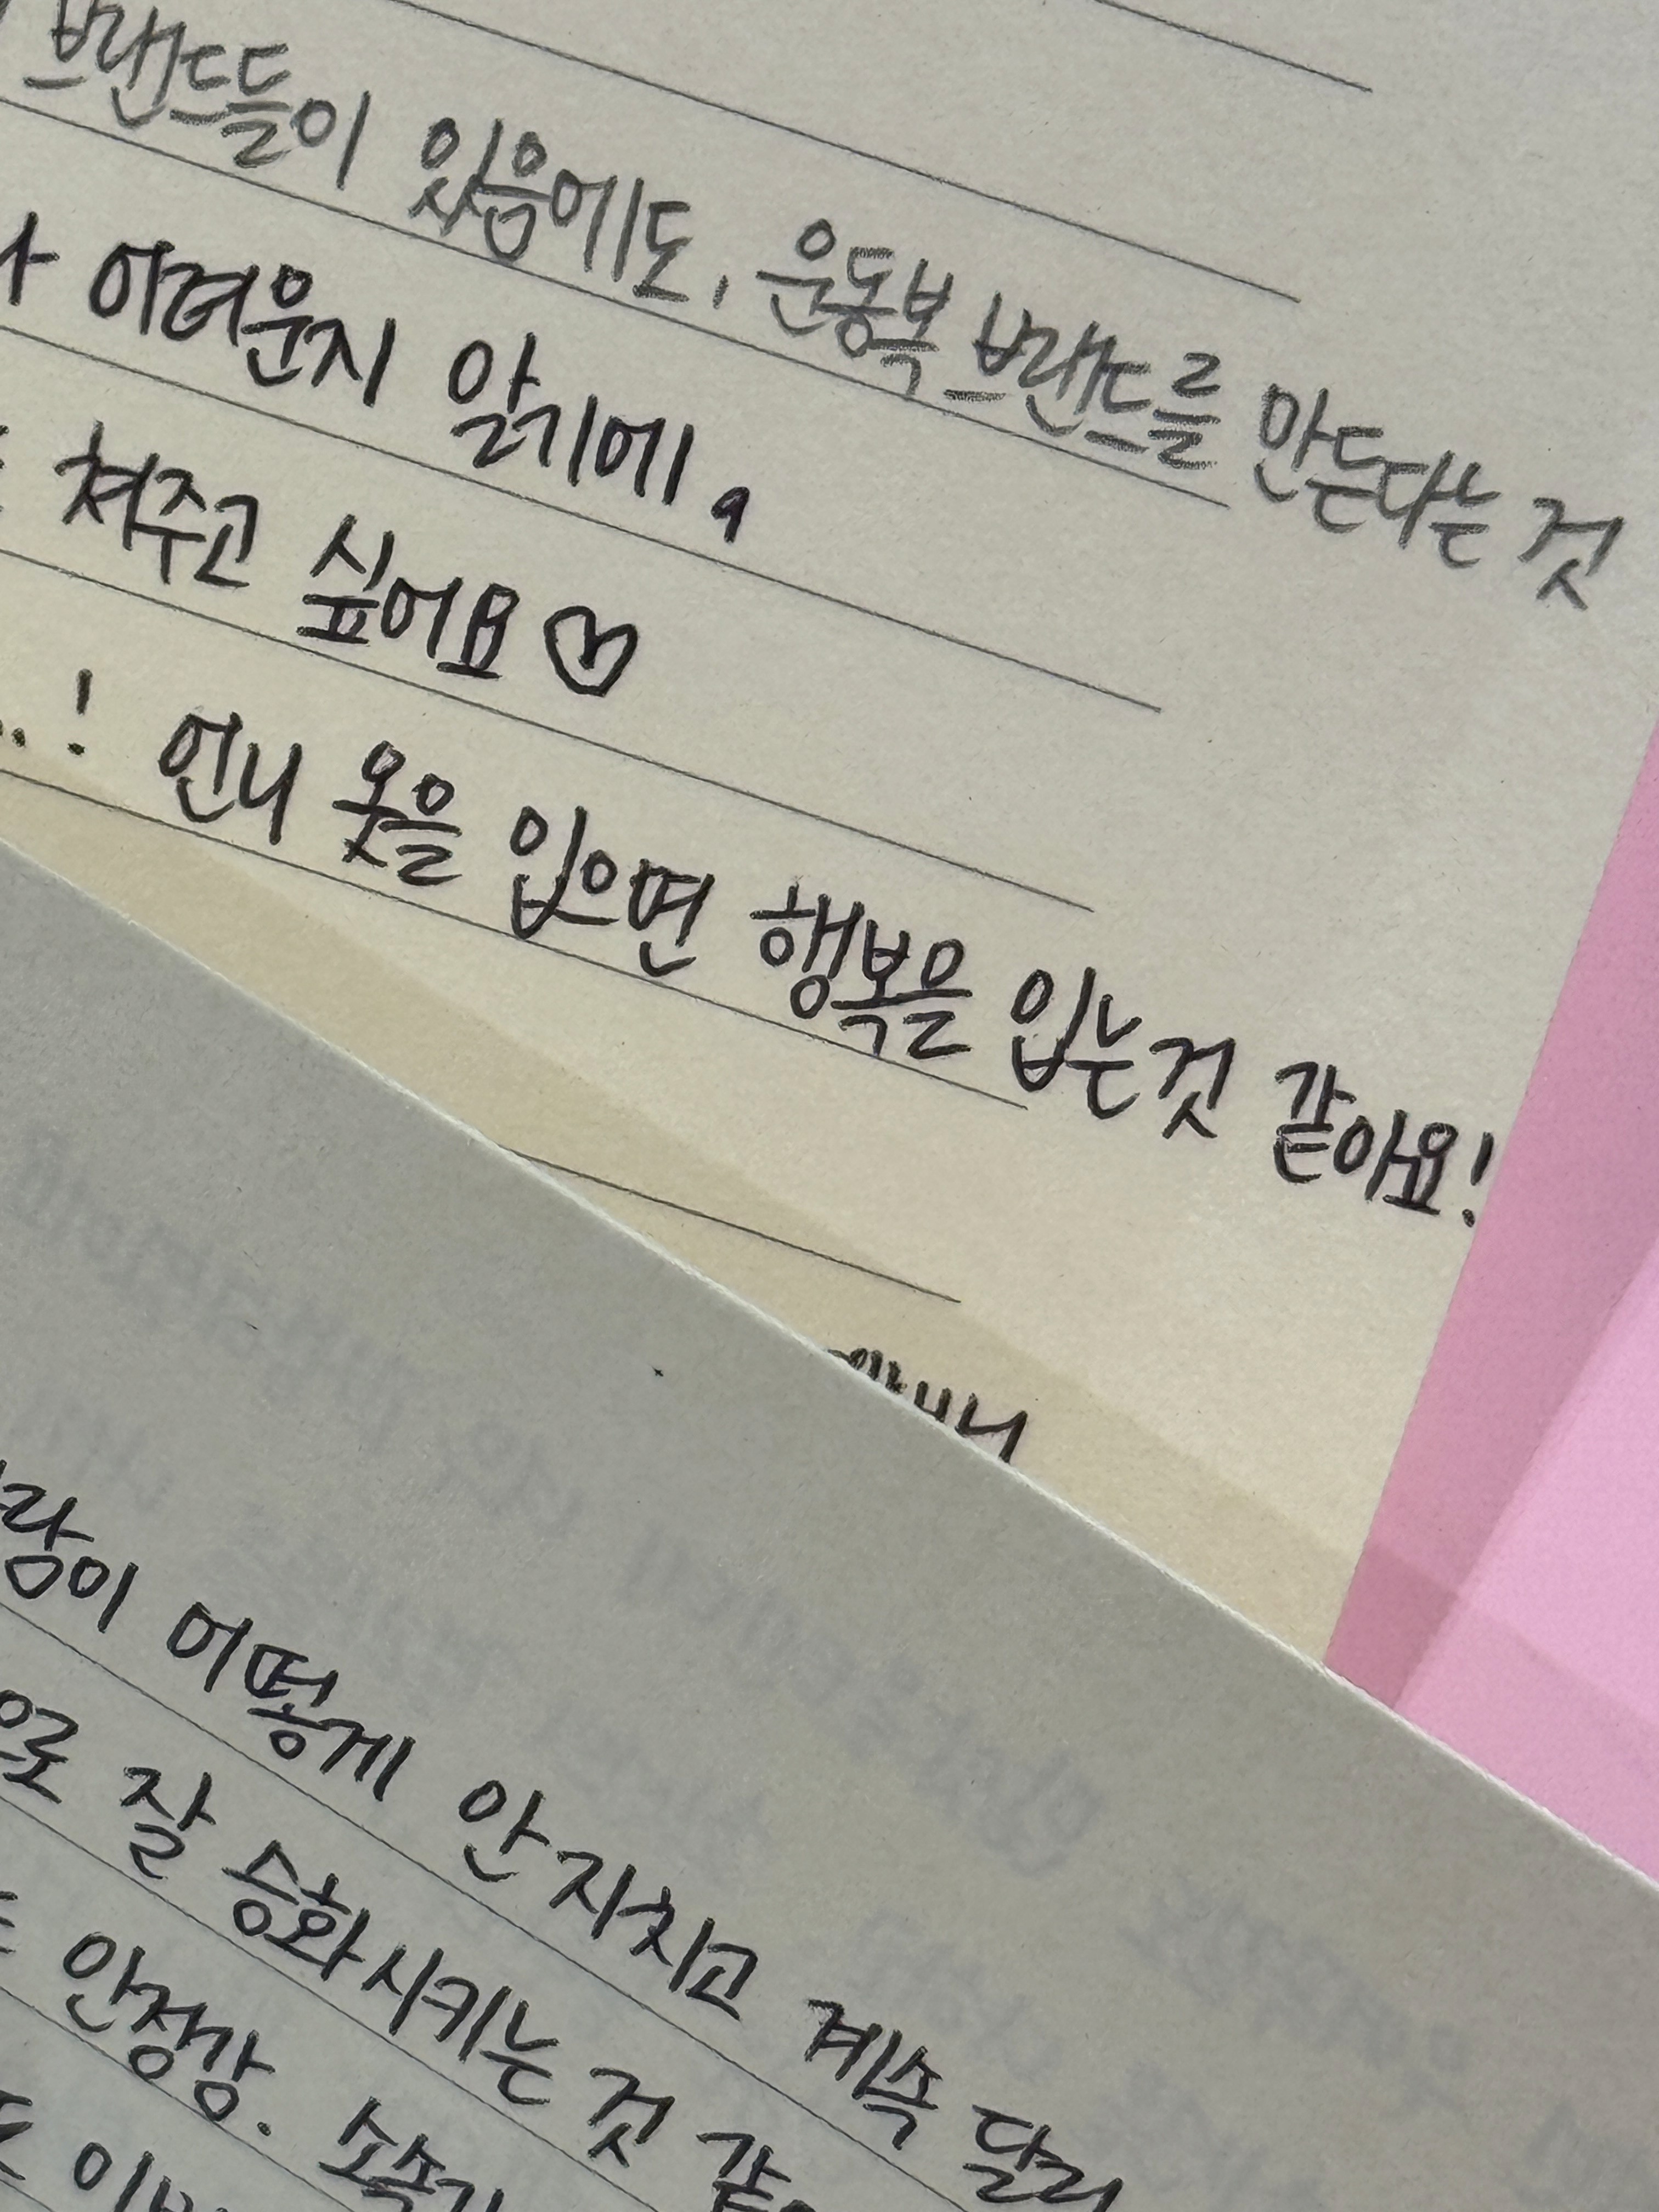 브랜드들이 있음에도, 운동복 브랜드를 만든다는 것
어려운지 알기에,
쳐주고 싶어요♡
..! 언니 옷을 입으면 행복을 입는것 같아요!
어떻게 안 지치고 계속 달리
으로 잘 승화시키는 것
안정감. 소속감